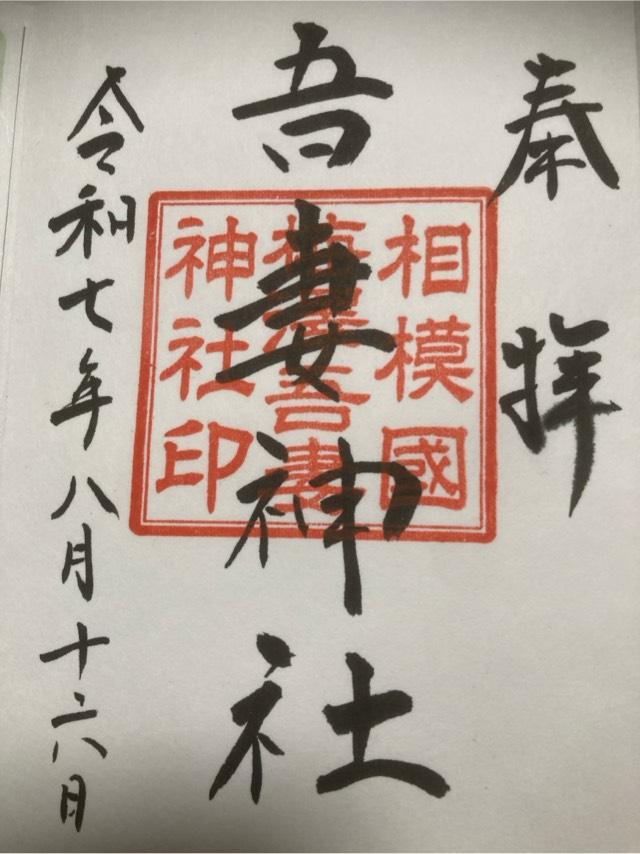 奉拝
吾妻神社
相模國
梅澤吾妻
神社印
令和七年八月十六日